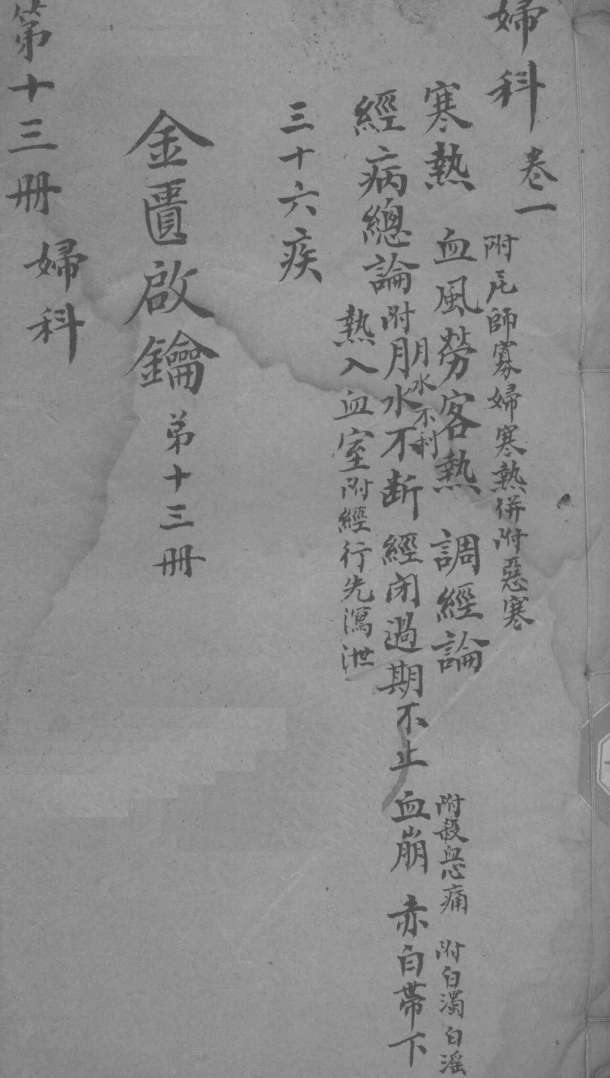 婦科 卷一
附尼師寡婦寒熱併附惡寒
寒熱 血風勞客熱 調經論
附殺血心痛 附白濁白滛
經病總論附月水不利 月水不断 經閉過期不止 血崩 赤白帶下
熱入血室附經行先瀉泄
三十六疾
金匱啟鑰 第十三册
第十三册 婦科